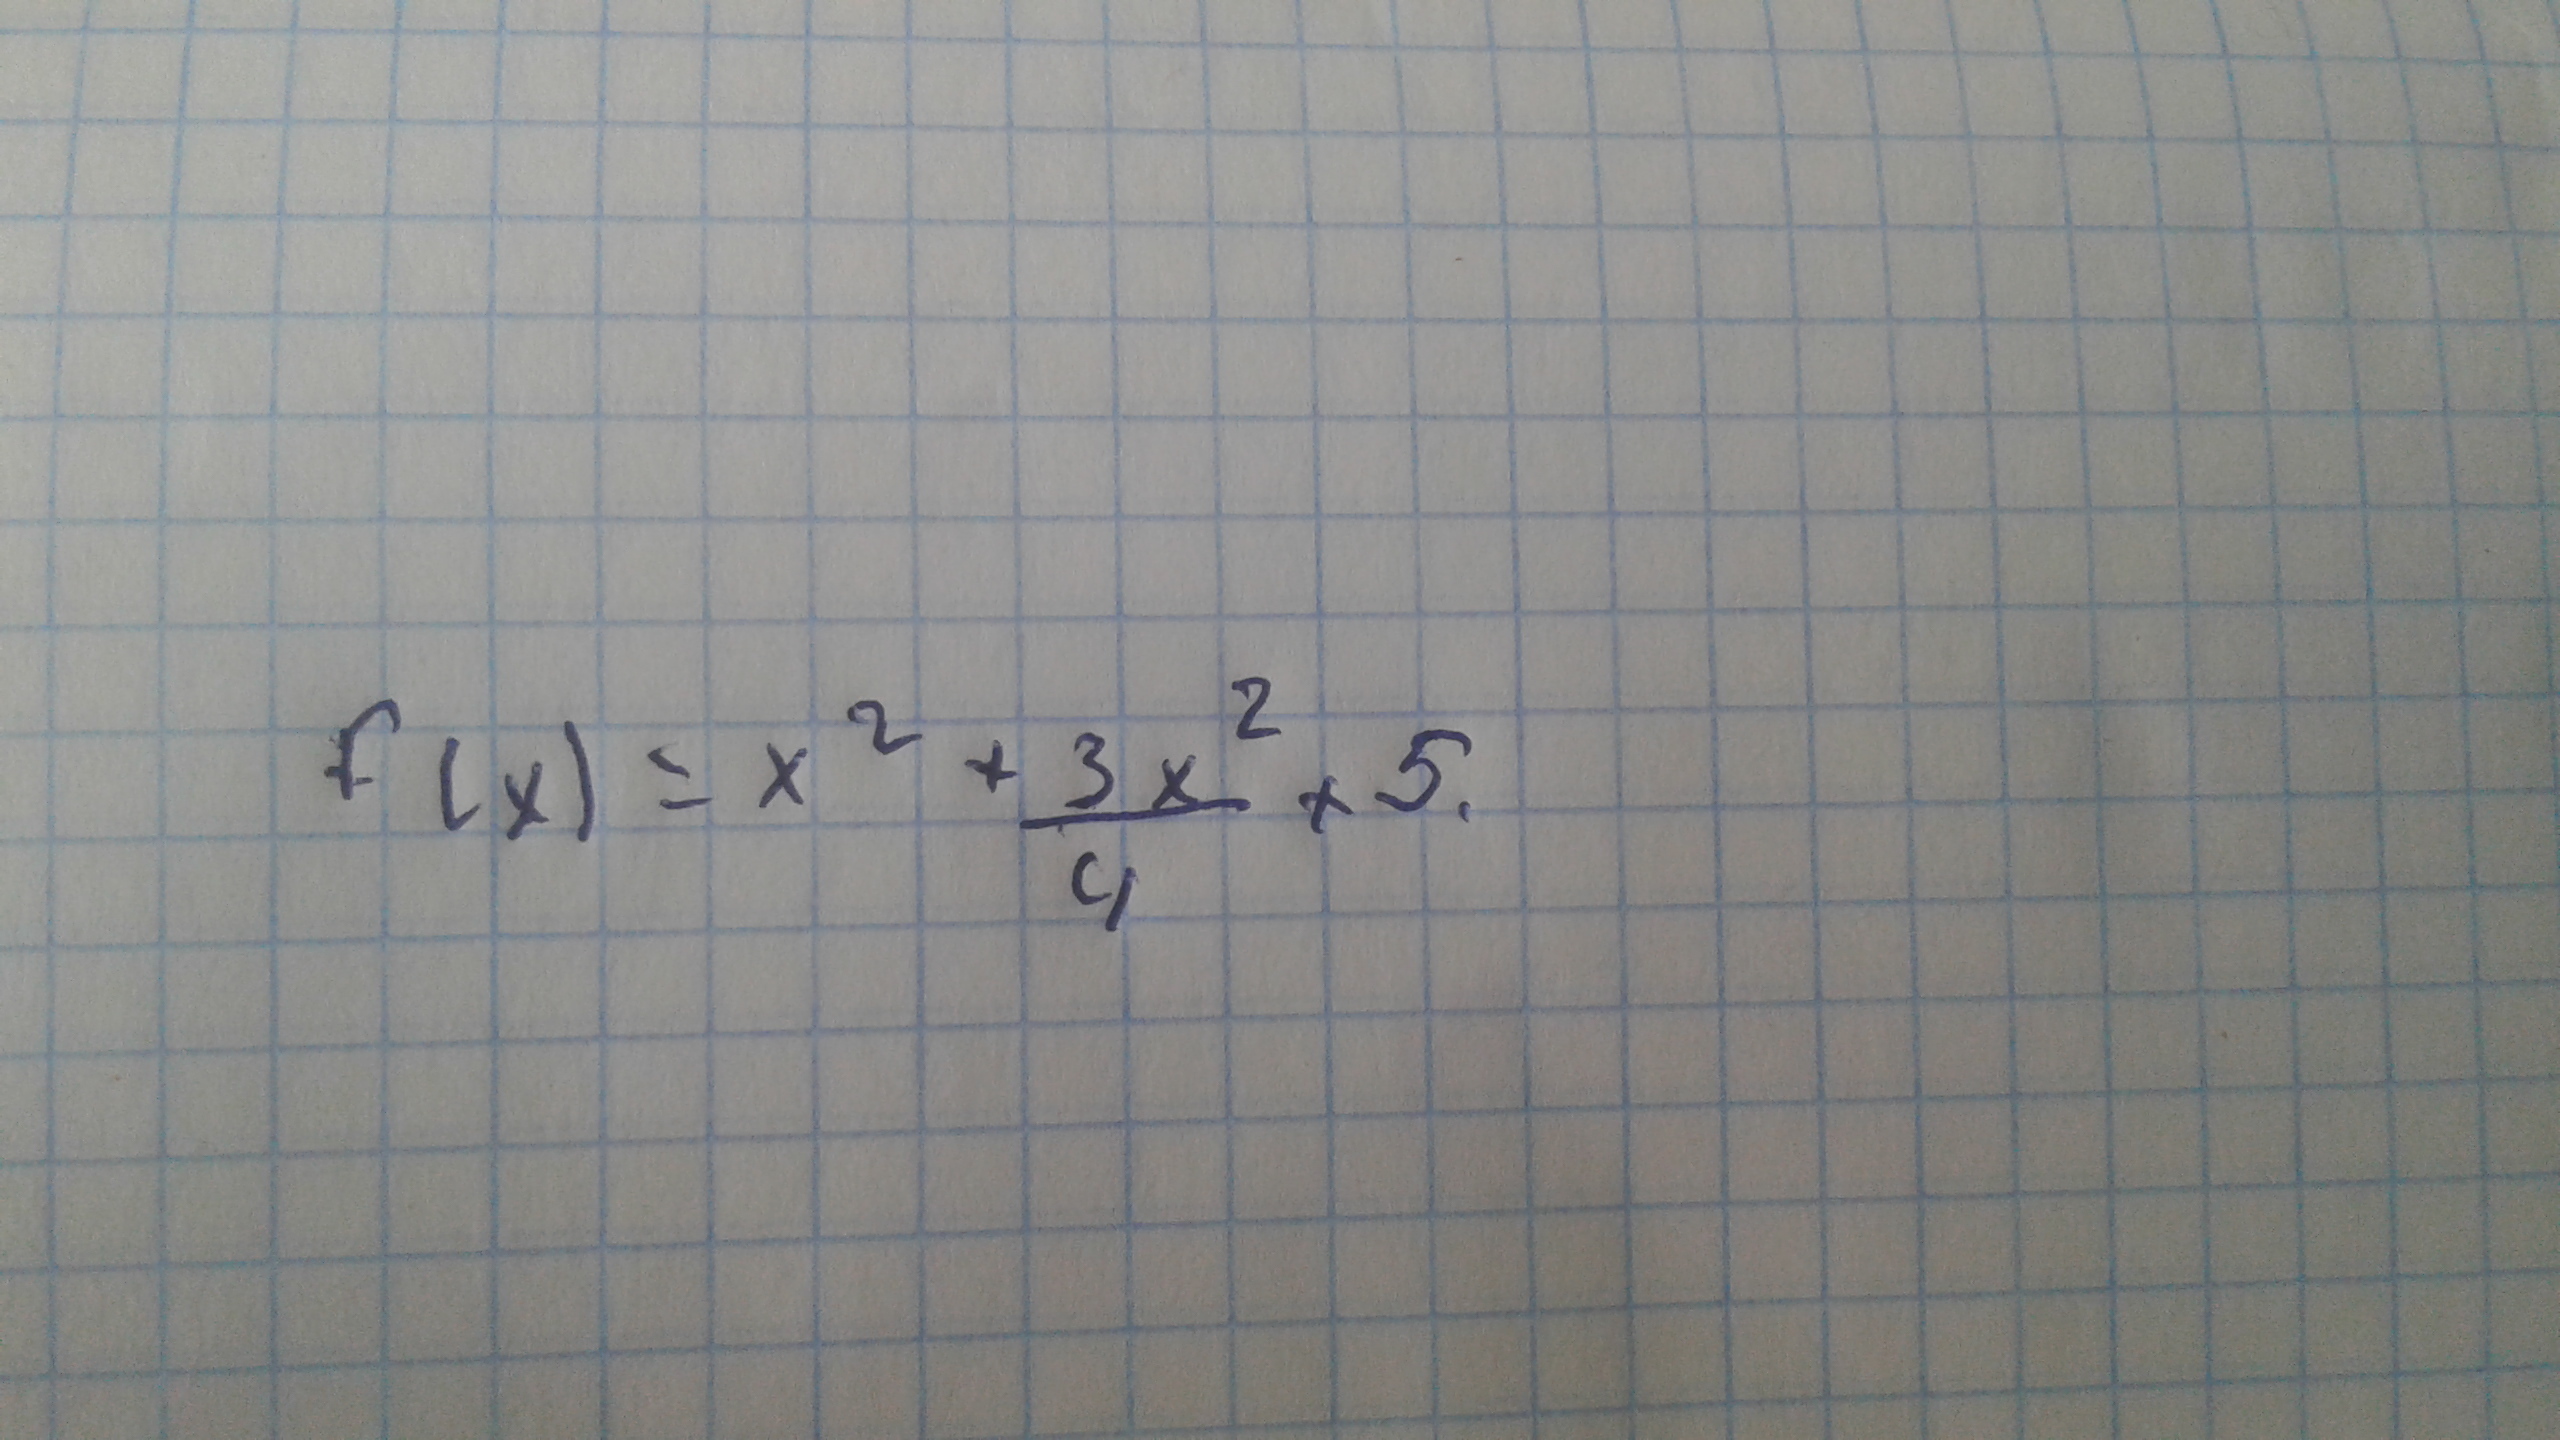 f(x) = x² + 3x²/4 + 5.